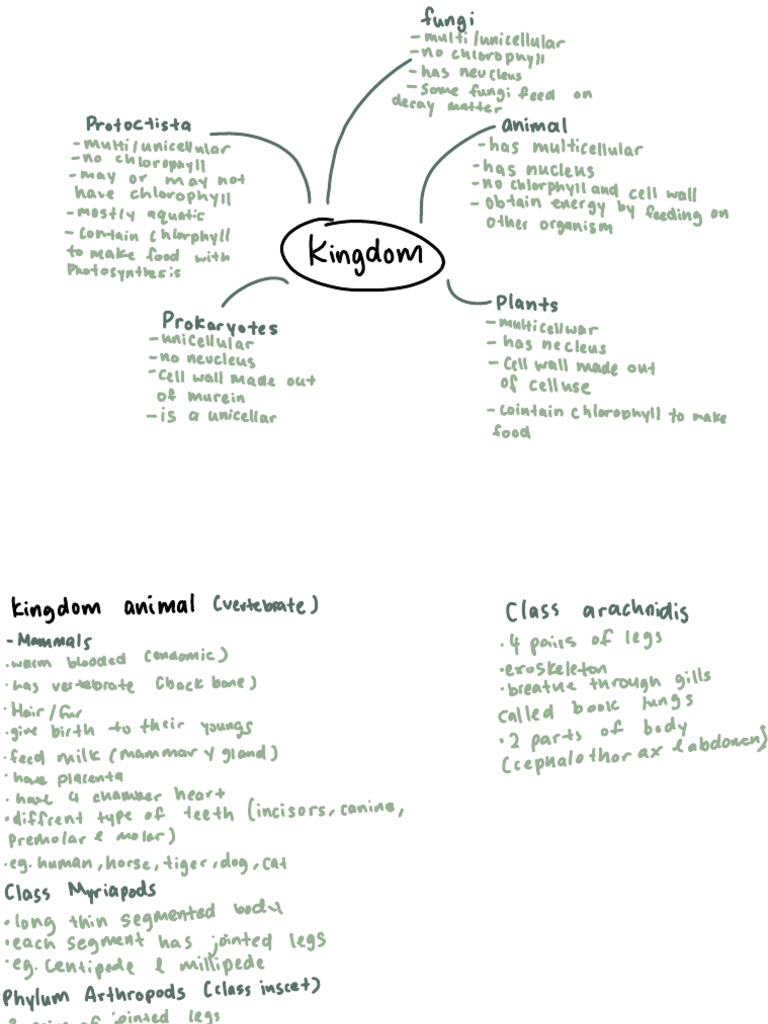 fungi
- multi/unicellular
- no chlorophyll
- has neucleus
- Some fungi feed on
decay matter
Protoctista
- multi/unicellular
- no chlorophyll
- may or may not
have chlorophyll
- mostly aquatic
- contain chlorphyll
to make food with
Photosynthesis
animal
- has multicellular
- has nucleus
- no chlorphyll and cell wall
- obtain energy by feeding on
other organism
Kingdom
Prokaryotes
- unicellular
- no neucleus
- cell wall made out
of murein
- is a unicellar
Plants
- multicellular
- has necleus
- Cell wall made out
of celluse
- cointain chlorophyll to make
food
kingdom animal (vertebrate)
- Mammals
• warm blooded (endomic)
• has vertebrate (back bone)
• Hair/fur
• give birth to their youngs
• feed milk (mammary gland)
• have placenta
• have 4 chamber heart
• diffrent type of teeth (incisors, canine,
premolar & molar)
• eg. human, horse, tiger, dog, cat
Class Myriapods
• long thin segmented body
• each segment has jointed legs
• eg. centipede & millipede
Phylum Arthropods (class inscet)
of jointed legs
Class arachnidis
• 4 pairs of legs
• exoskeleton
• breathe through gills
called book lungs
• 2 parts of body
(cephalothorax & abdomen)